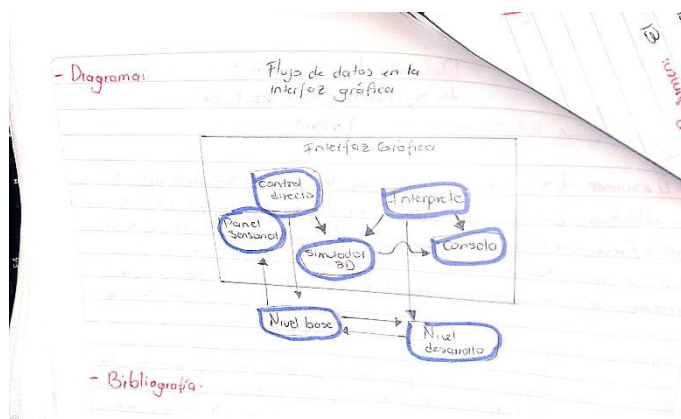 - Diagrama:
Flujo de datos en la
interfaz gráfica
Interfaz Gráfica
Control
directo
Interprete
Panel
Sensorial
Simulador
3D
Consola
Nivel base
Nivel
desarrollo
- Bibliografía.